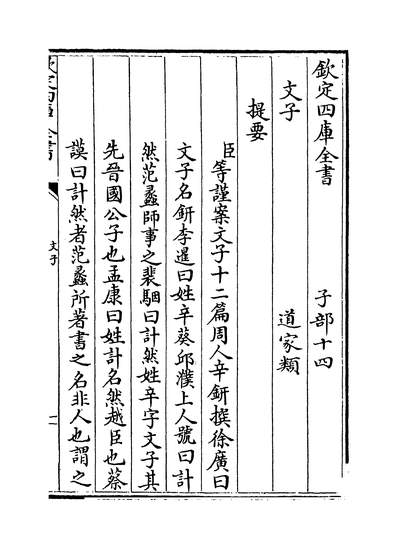 欽定四庫全書　子部十四
文子　道家類
提要
臣等謹案文子十二篇周人辛鈃撰徐廣曰
文子名鈃李暹曰姓辛葵邱濮上人號曰計
然范蠡師事之裴駰曰計然姓辛字文子其
先晉國公子也孟康曰姓計名然越臣也蔡
謨曰計然者范蠡所著書之名非人也謂之
欽定四庫全書
文子
一